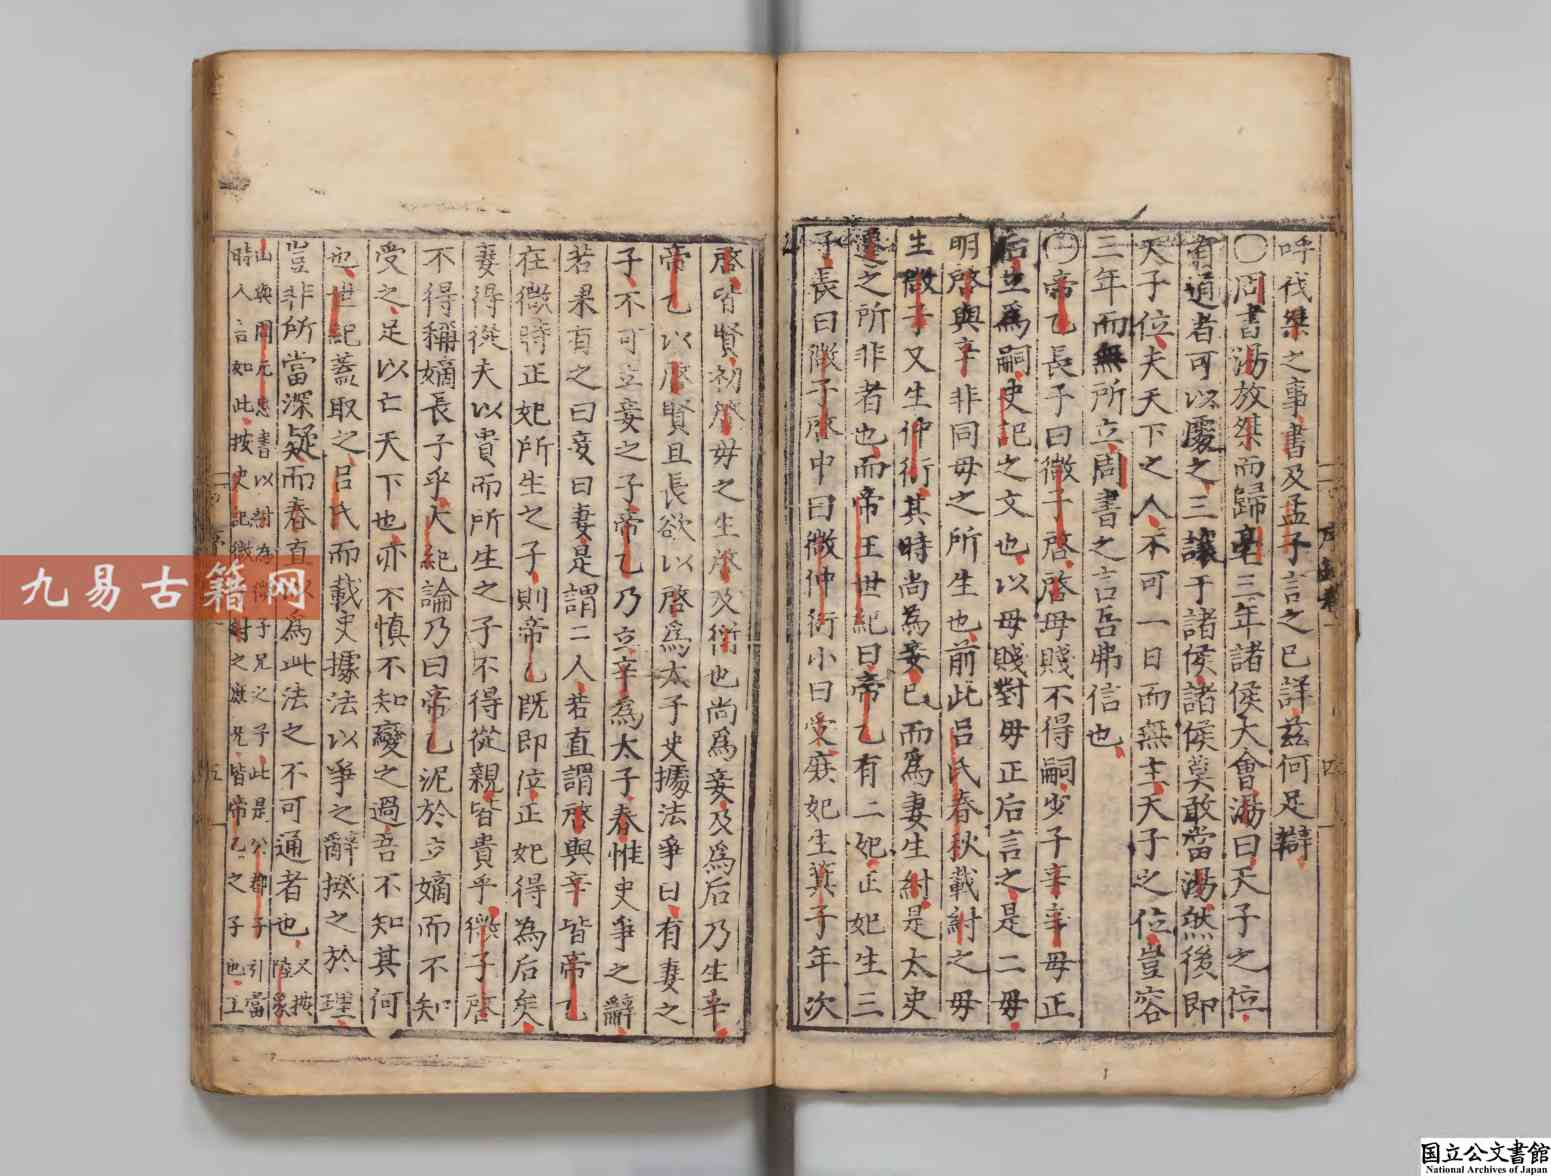 呼伐桀之事書及孟子言之已詳茲何足辯
〇周書湯放桀而歸亳三年諸侯大會湯曰天子之位
有道者可以處之三讓于諸侯諸侯莫敢當湯然後即
天子位夫天下之人不可一日而無主天子之位豈容
三年而無所立周書之言吾弗信也
〇帝乙長子曰微子啓啓母賤不得嗣少子辛辛母正
后立爲嗣史記之文也以母賤對毋正后言之是二母
明啓與辛非同母之所生也前此呂氏春秋載紂之母
生微子又生仲衍其時尚爲妾已而爲妻生紂是太史
遷之所非者也而帝王世紀曰帝乙有二妃正妃生三
子長曰微子啓中曰微仲衍小曰受庶妃生箕子年次
啓皆賢初啓母之生啓及衍也尚爲妾及爲后乃生辛
帝乙以啓賢且長欲以啓爲太子史據法爭曰有妻之
子不可立妾之子帝乙乃立辛爲太子春惟史爭之辭
若果有之曰妾曰妻是謂二人若直謂啓與辛皆帝乙
在微時正妃所生之子則帝乙既即位正妃得爲后矣
妻得從夫以貴而所生之子不得從親皆貴乎微子啓
不得稱嫡長子乎大紀論乃曰帝乙泥於立嫡而不知
受之足以亡天下也亦不慎不知變之過吾不知其何
也世紀蓋取之呂氏而載史據法以爭之辭揆之於理
豈非所當深疑而春直以爲此法之不可通者也又按陸象
山與周元忠書以紂為微子兄之子此是公都子引當
時人言如此按史記微紂之庶兄皆帝乙之子也工
九易古籍网
国立公文書館
National Archives of Japan